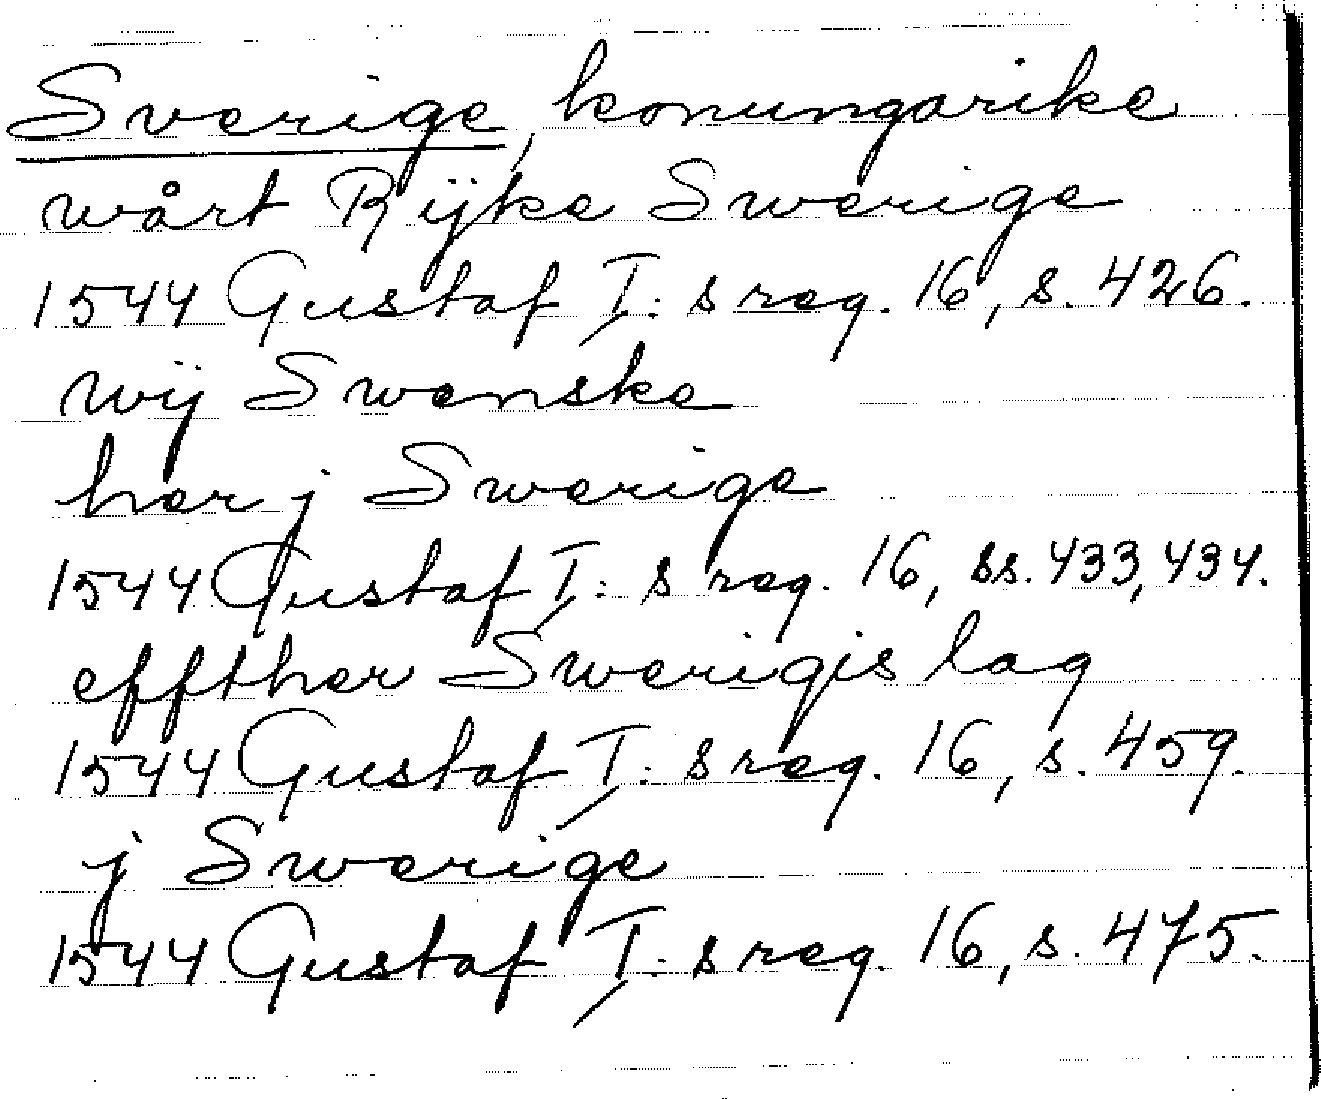 Sverige, konungarike
wårt Rijke Swerige
1544 Gustaf I:s reg. 16, s. 426.
wij Swenske
her j Swerige
1544 Gustaf I:s reg. 16, ss. 433, 434.
effther Swerigis lag
1544 Gustaf I:s reg. 16, s. 459.
j Swerige
1544 Gustaf I:s reg. 16, s. 475.